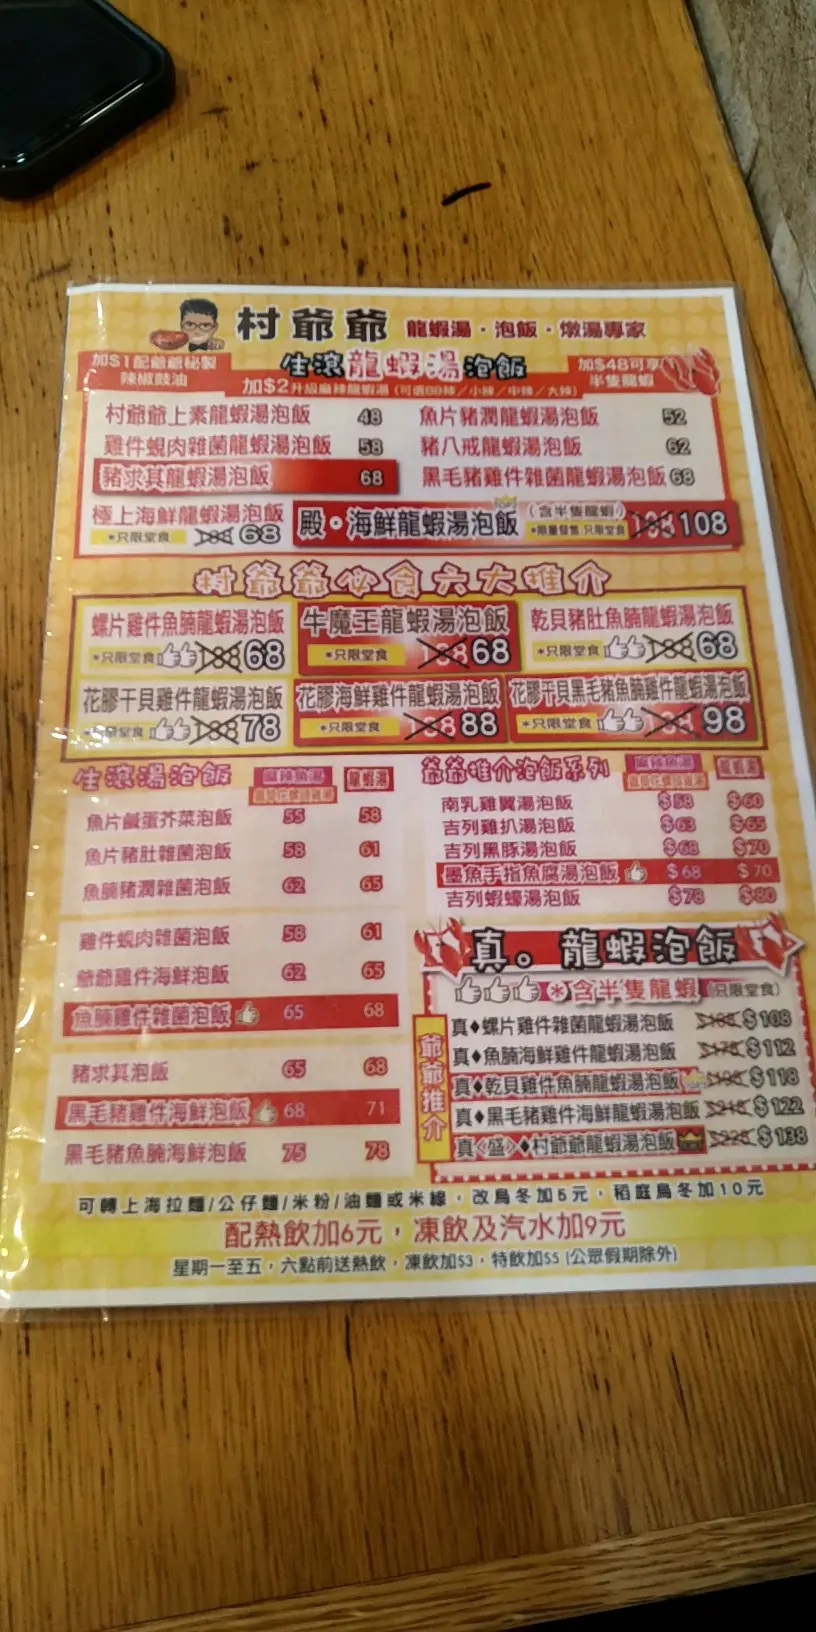 村爺爺 龍蝦湯·泡飯·燉湯專家
加$1配爺爺秘製
辣椒豉油
生滾龍蝦湯泡飯
加$48可享
半隻龍蝦
加$2升級麻辣龍蝦湯(可選BB辣/小辣/中辣/大辣)
村爺爺上素龍蝦湯泡飯 48
魚片豬潤龍蝦湯泡飯 52
雞件蜆肉雜菌龍蝦湯泡飯 58
豬八戒龍蝦湯泡飯 62
豬求其龍蝦湯泡飯 68
黑毛豬雞件雜菌龍蝦湯泡飯 68
極上海鮮龍蝦湯泡飯
*只限堂食 68
殿·海鮮龍蝦湯泡飯 (含半隻龍蝦)
*限量發售,只限堂食 108
村爺爺必食六大推介
螺片雞件魚腩龍蝦湯泡飯
*只限堂食 68
牛魔王龍蝦湯泡飯
*只限堂食 68
乾貝豬肚魚腩龍蝦湯泡飯
*只限堂食 68
花膠干貝雞件龍蝦湯泡飯
*只限堂食 78
花膠海鮮雞件龍蝦湯泡飯
*只限堂食 88
花膠干貝黑毛豬魚腩雞件龍蝦湯泡飯
*只限堂食 98
生滾湯泡飯 麻辣魚湯 龍蝦湯
魚片鹹蛋芥菜泡飯 55 58
魚片豬肚雜菌泡飯 58 61
魚腩豬潤雜菌泡飯 62 65
雞件蜆肉雜菌泡飯 58 61
爺爺雞件海鮮泡飯 62 65
魚腩雞件雜菌泡飯 65 68
豬求其泡飯 65 68
黑毛豬雞件海鮮泡飯 68 71
黑毛豬魚腩海鮮泡飯 75 78
爺爺推介泡飯系列 麻辣魚湯 龍蝦湯
南乳雞翼湯泡飯 $58 $60
吉列雞扒湯泡飯 $63 $65
吉列黑豚湯泡飯 $68 $70
墨魚手指魚腐湯泡飯 $68 $70
吉列蝦蠔湯泡飯 $78 $80
真。龍蝦泡飯
*含半隻龍蝦 (只限堂食)
爺爺推介
真♦螺片雞件雜菌龍蝦湯泡飯 $108
真♦魚腩海鮮雞件龍蝦湯泡飯 $178 $112
真♦乾貝雞件魚腩龍蝦湯泡飯 $198 $118
真♦黑毛豬雞件海鮮龍蝦湯泡飯 $218 $122
真<盛>♦村爺爺龍蝦湯泡飯 $228 $138
可轉上海拉麵/公仔麵/米粉/油麵或米線,改烏冬加5元,稻庭烏冬加10元
配熱飲加6元,凍飲及汽水加9元
星期一至五,六點前送熱飲,凍飲加$3,特飲加$5 (公眾假期除外)